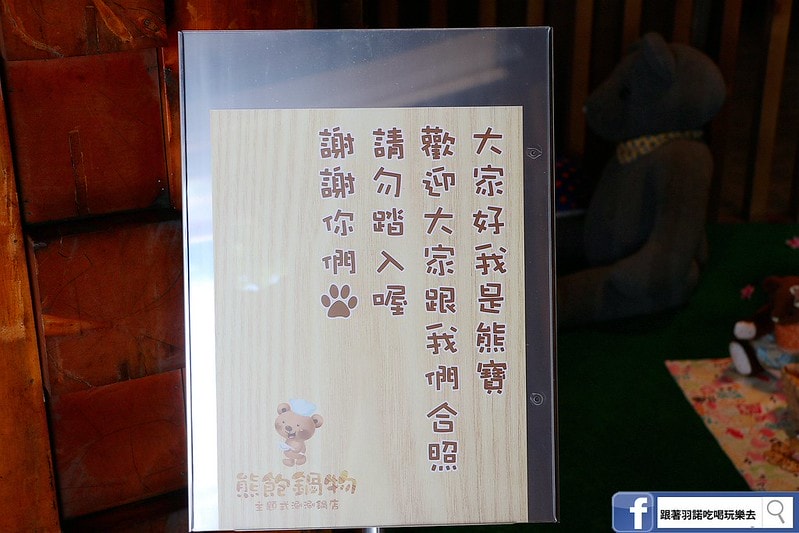 大家好我是熊寶
歡迎大家跟我們合照
請勿踏入喔
謝謝你們
熊飽鍋物
跟著羽諾吃喝玩樂去